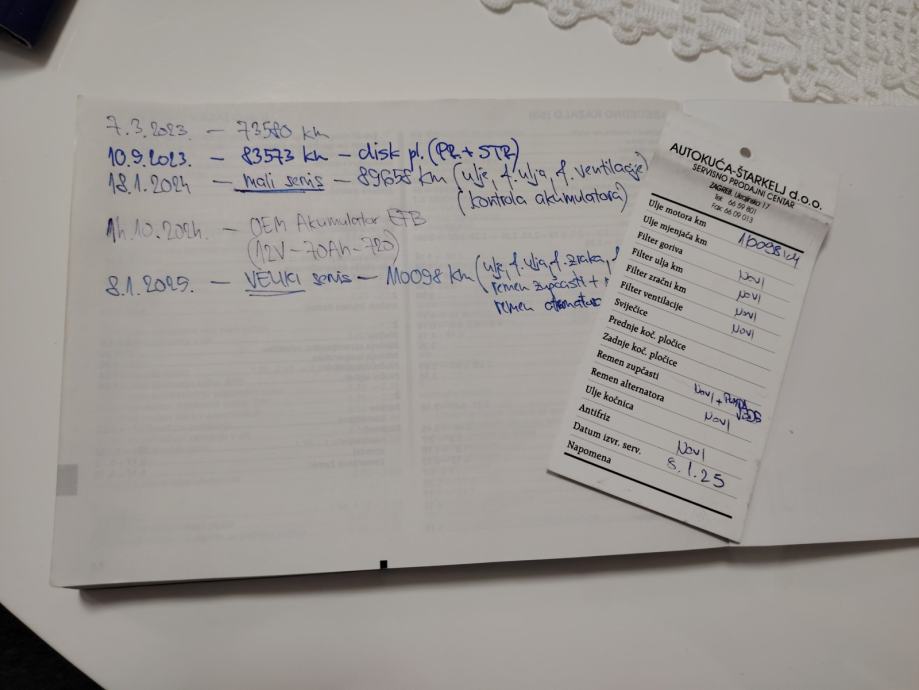 7.3.2023. – 73580 km
10.9.2023. – 83573 km – disk pl. (PR. + STR)
18.1.2024 – mali servis – 89658 km (ulje, f. ulja, f. ventilacije)
(kontrola akumulatora)
14.10.2024. – OEM Akumulator EFB
(12V – 70Ah – 720)
8.1.2025. – VELIKI servis – 110098 km (ulje, f. ulja, f. zraka,
remen zupčasti +
remen
AUTOKUĆA-ŠTARKELJ d.o.o.
SERVISNO PRODAJNI CENTAR
ZAGREB, 17
Tel: 66 59 801
Fax: 66 09 013
Ulje motora km 110098 km
Ulje mjenjača km
Filter goriva NOVI
Filter ulja km NOVI
Filter zračni km NOVI
Filter ventilacije NOVI
Svijećice
Prednje koč. pločice
Zadnje koč. pločice
Remen zupčasti NOVI + PUMPA VODE
Remen alternatora NOVI
Ulje kočnica
Antifriz NOVI
Datum izvr. serv. 8.1.25
Napomena